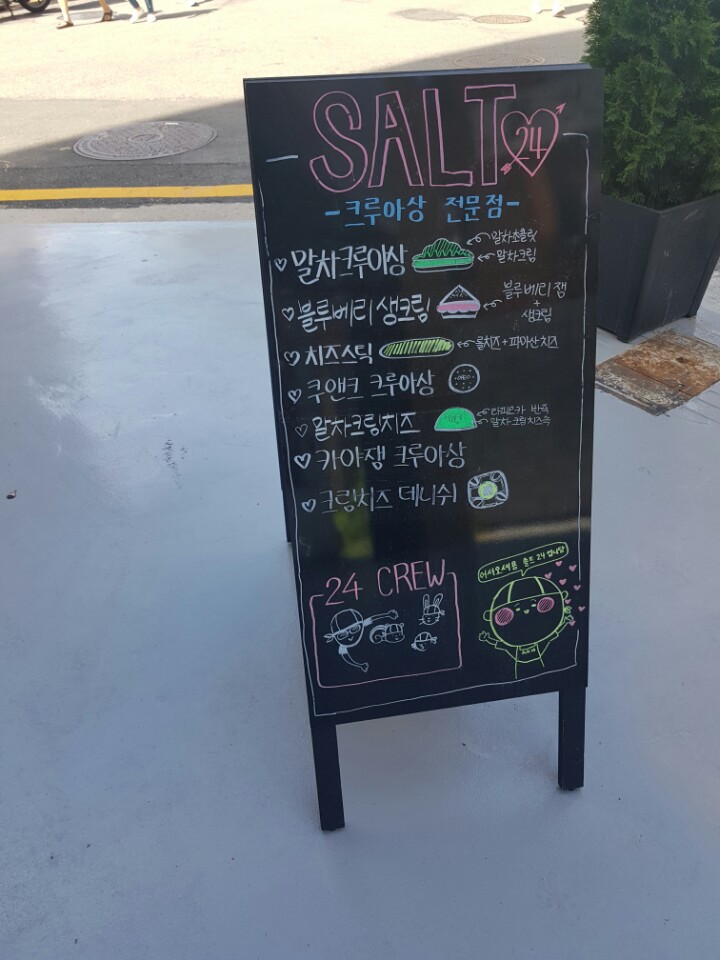 SALT 24
-크루아상 전문점-
♡ 말차크루아상
말차초콜릿
말차크림
♡ 블루베리 생크림
블루베리 잼
+
생크림
♡ 치즈스틱
롤치즈+파마산치즈
♡ 쿠앤크 크루아상
OREO
♡ 말차크림치즈
타피오카 반죽
말차크림치즈속
♡ 카야잼 크루아상
♡ 크림치즈 데니쉬
24 CREW
어서오세욤 솔트 24 입니당